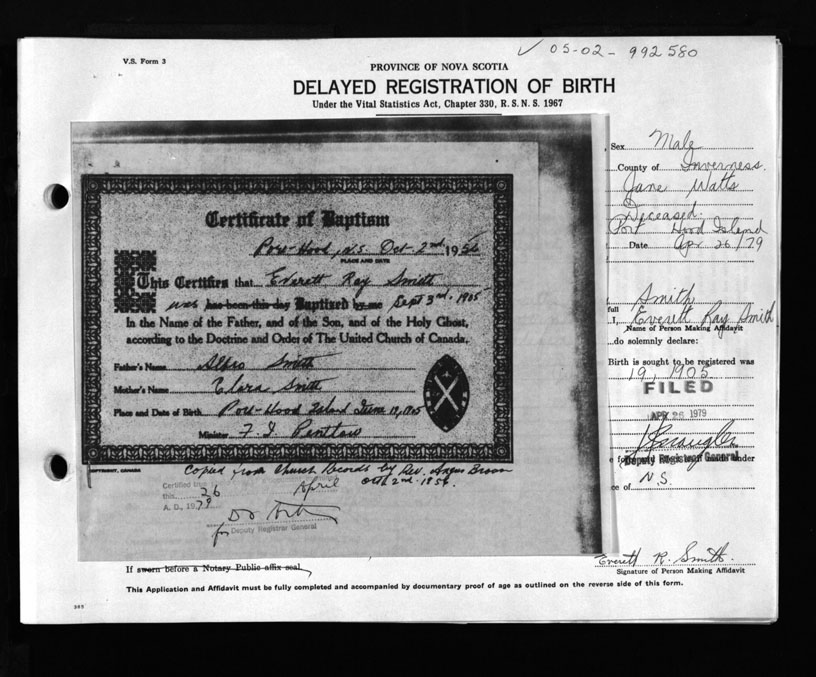 05-02- 992580
V.S. Form 3
PROVINCE OF NOVA SCOTIA
DELAYED REGISTRATION OF BIRTH
Under the Vital Statistics Act, Chapter 330, R. S. N. S. 1967
Sex Male
County of Inverness.
Jane Watts
Deceased.
Port Hood Island
Date Apr 26/79
Smith
full
I, Everett Ray Smith
Name of Person Making Affidavit
do solemnly declare:
Birth is sought to be registered was
19, 1905
FILED
APR 26 1979
Deputy Registrar General
under
ce of N.S.
Certificate of Baptism
Port-Hood, N.S. Oct. 2nd 1956
PLACE AND DATE
This Certifies that Everett Ray Smith
was has been this day Baptized by me Sept 3rd 1905
In the Name of the Father, and of the Son, and of the Holy Ghost,
according to the Doctrine and Order of The United Church of Canada.
Father's Name Smith
Mother's Name Clara Smith
Place and Date of Birth Port-Hood Island June 19, 1905
Minister F. I.
COPYRIGHT, CANADA
Copied from Church Records by Rev. Angus Brown
Oct 2nd. 1956.
Certified
this 26 April
A. D., 1979
for Deputy Registrar General
If sworn before a Notary Public affix seal.
Everett R. Smith.
Signature of Person Making Affidavit
This Application and Affidavit must be fully completed and accompanied by documentary proof of age as outlined on the reverse side of this form.